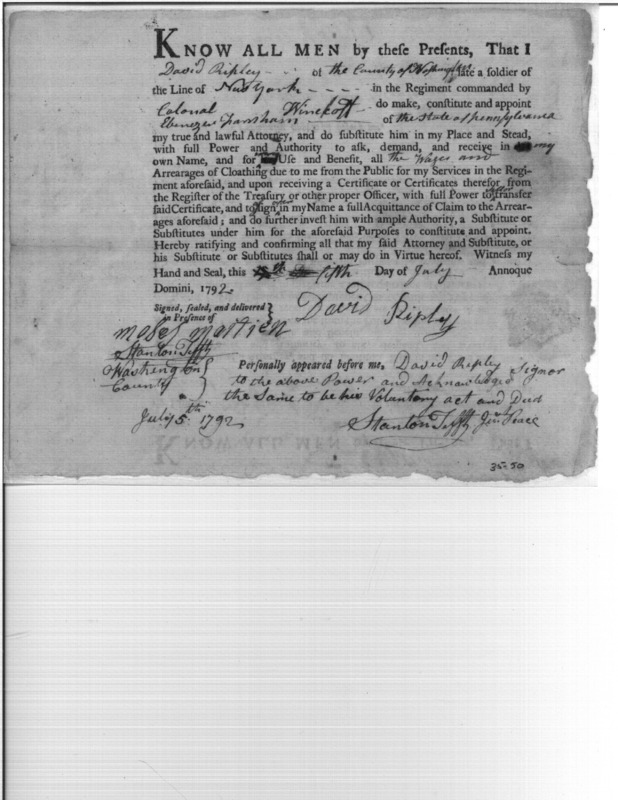 KNOW ALL MEN by these Presents, That I
David Ripley - - of the County of Washington late a soldier of
the Line of New York - - - - in the Regiment commanded by
Colonal Winecoff do make, constitute and appoint
Ebenezer Farnham of the State of Pennsylvania
my true and lawful Attorney, and do substitute him in my Place and Stead,
with full Power and Authority to ask, demand, and receive in my
own Name, and for Use and Benefit, all the Wages and
Arrearages of Cloathing due to me from the Public for my Services in the Regi-
ment aforesaid, and upon receiving a Certificate or Certificates therefor from
the Register of the Treasury or other proper Officer, with full Power to transfer
said Certificate, and to sign in my Name a full Acquittance of Claim to the Arrear-
ages aforesaid; and do further invest him with ample Authority, a Substitute or
Substitutes under him for the aforesaid Purposes to constitute and appoint.
Hereby ratifying and confirming all that my said Attorney and Substitute, or
his Substitute or Substitutes shall or may do in Virtue hereof. Witness my
Hand and Seal, this fifth Day of July Annoque
Domini, 1792.
Signed, sealed, and delivered
in Presence of
David Ripley
moses martien
Stanton Tefft
Washington
County
Personally appeared before me, David Ripley Signor
to the above Power and Acknowledgd
the Same to be his Volantary act and Deed
July 5th 1792
Stanton Tefft Jus Peace
35-50